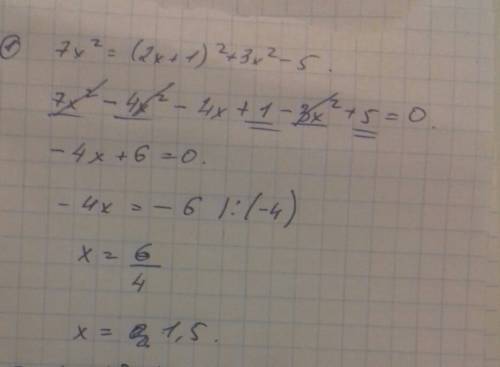 ① 7x² = (2x+1)²+3x²-5.
7x² - 4x² - 4x + 1 - 3x² + 5 = 0.
-4x + 6 = 0.
-4x = -6 |:(-4)
x = 6/4
x = 1,5.